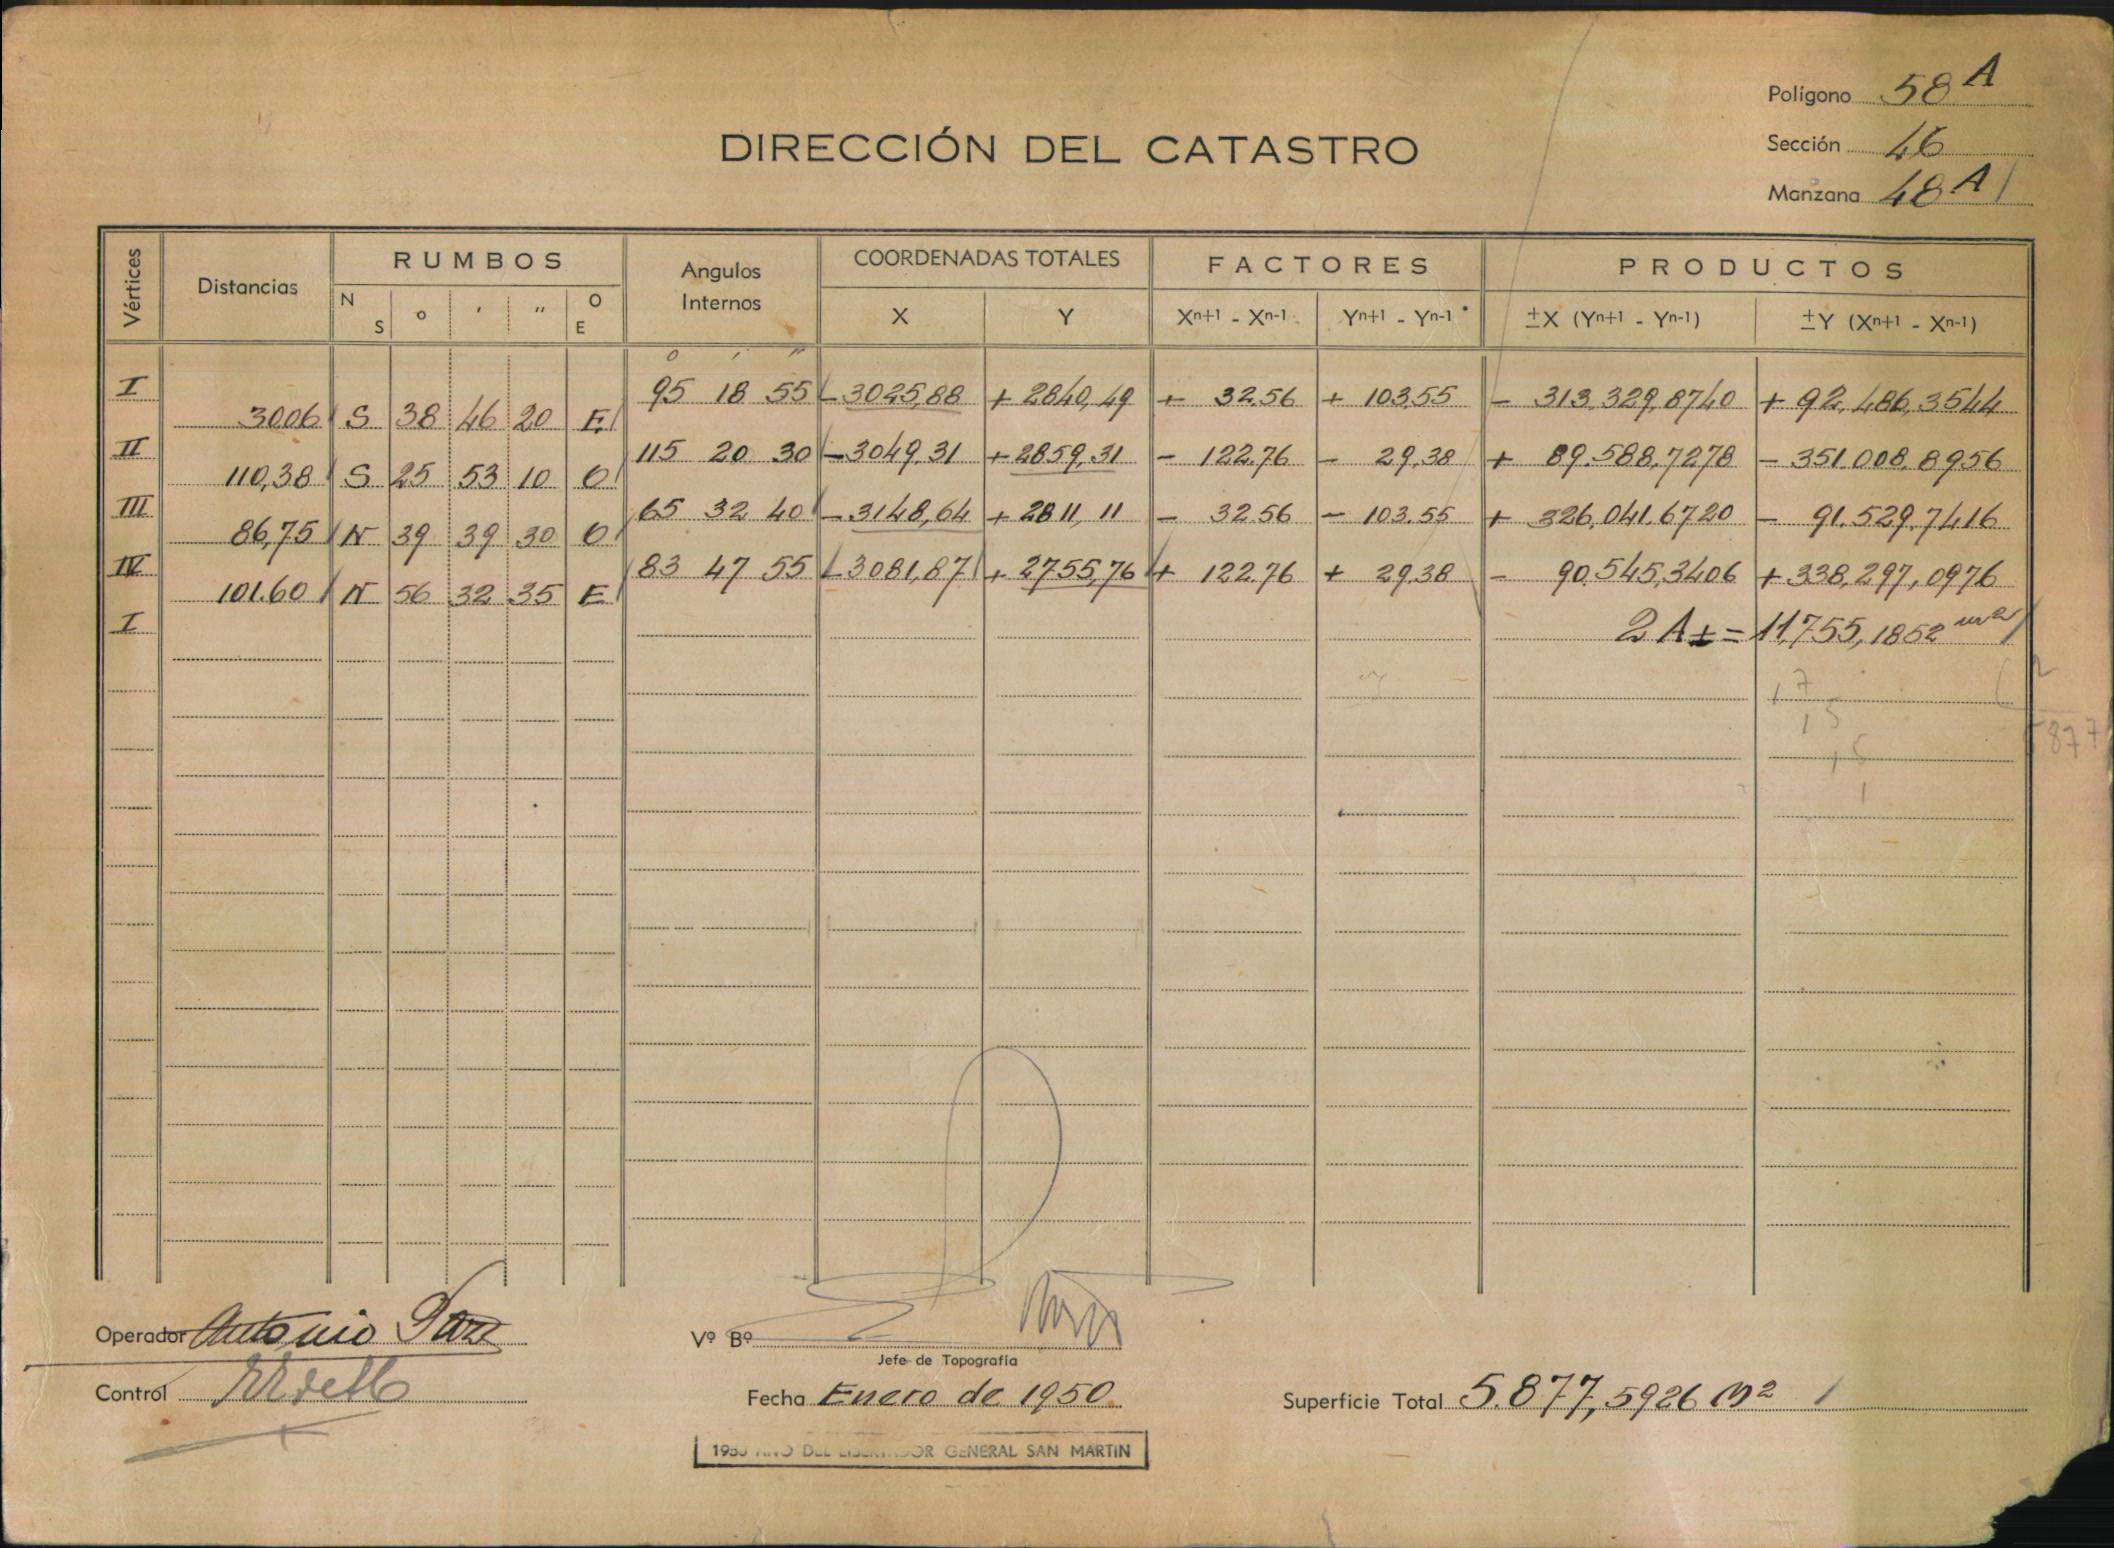 Polígono 58 A
Sección 46
Manzana 48 A
DIRECCIÓN DEL CATASTRO
Vértices Distancias RUMBOS Angulos Internos COORDENADAS TOTALES FACTORES PRODUCTOS
N S o ' " O E X Y Xn+1 - Xn-1 Yn+1 - Yn-1 ±X (Yn+1 - Yn-1) ±Y (Xn+1 - Xn-1)
o ' "
I 95 18 55 - 3025,88 + 2840,49 + 32.56 + 103.55 - 313,329,8740 + 92,486,3544
30.06 S 38 46 20 E
II 115 20 30 - 3049.31 + 2859,31 - 122.76 - 29,38 + 89.588,7278 - 351.008.8956
110,38 S 25 53 10 O
III 65 32 40 - 3148,64 + 2811,11 - 32.56 - 103.55 + 326,041.6720 - 91.529,7416
86,75 N 39 39 30 O
IV 83 47 55 - 3081,87 + 2755,76 + 122.76 + 29.38 - 90.545,3406 + 338,297,0976
101.60 N 56 32 35 E
I 2 A ± = 11,755,1852 m2
17
2
15
5877
15
1
Operador Antonio
Vº Bº
Jefe de Topografía
Control
Fecha Enero de 1950
Superficie Total 5.877,5926 M2
1950 AÑO DEL LIBERTADOR GENERAL SAN MARTIN